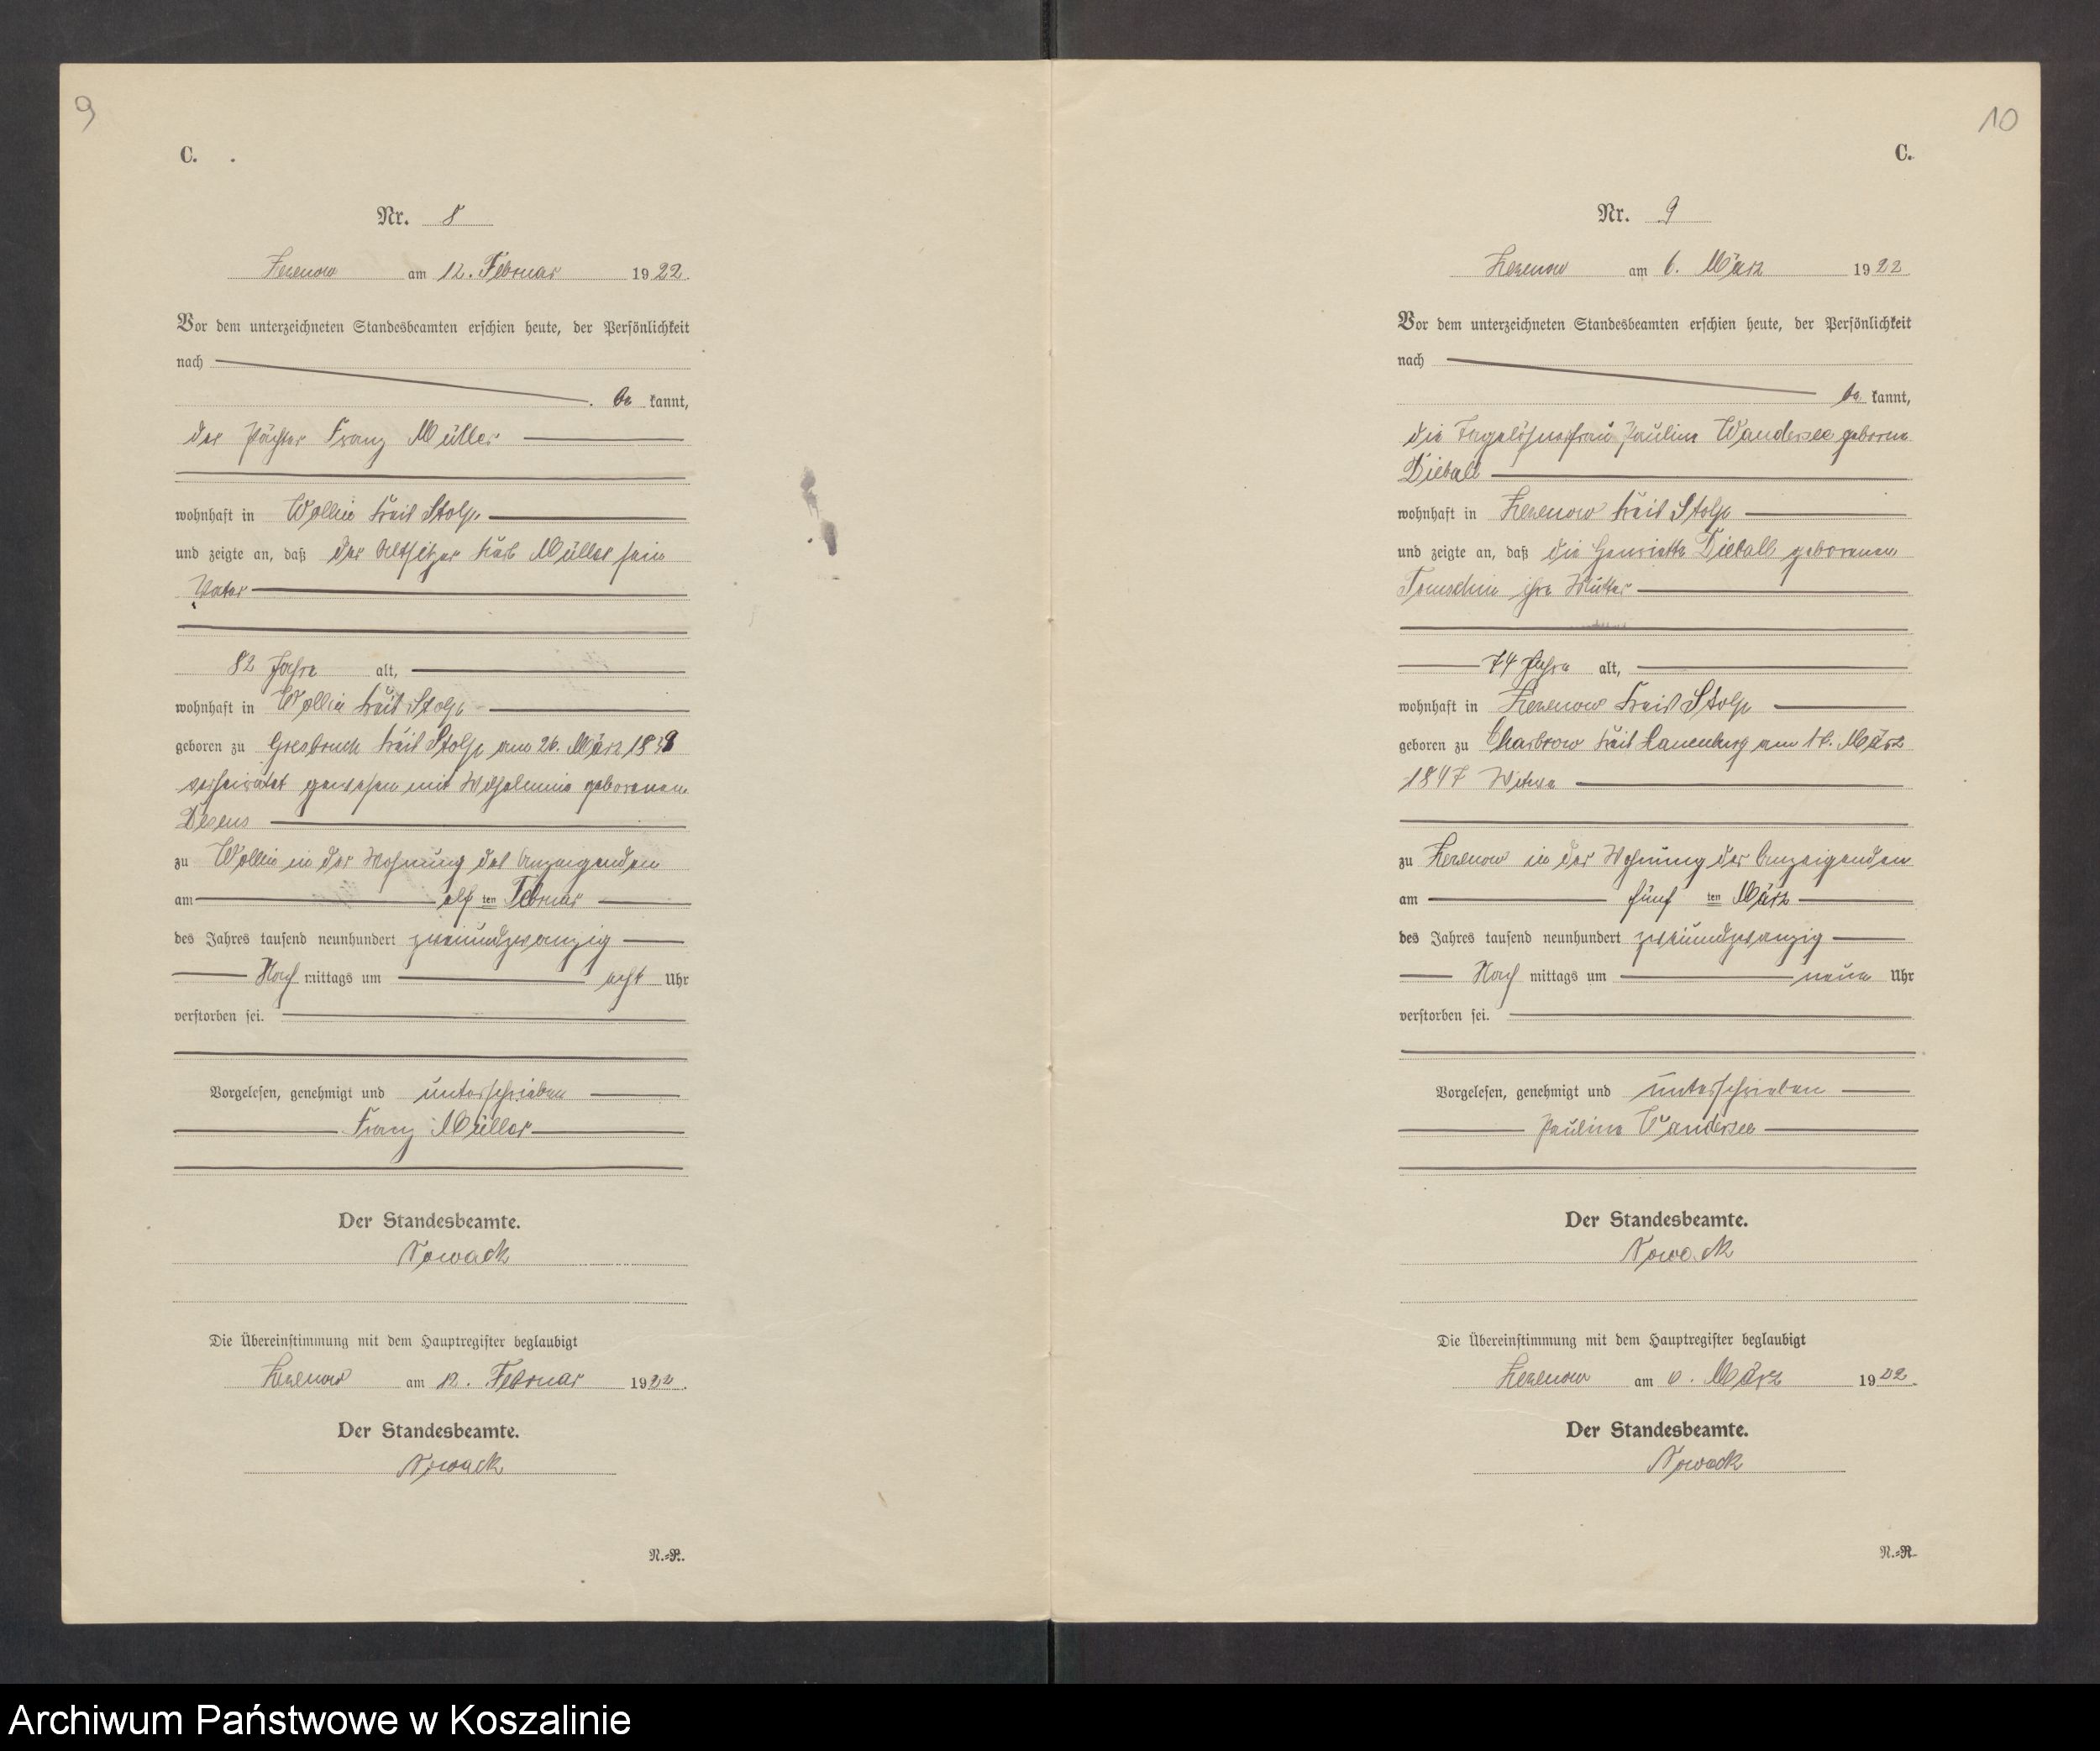 9
C.
Nr. 8
Zezenow am 12. Februar 1922.
Vor dem unterzeichneten Standesbeamten erschien heute, der Persönlichkeit
nach
be kannt,
der Pächter Franz Müller
wohnhaft in Wollin Kreis Stolp
und zeigte an, daß der Altsitzer Müller sein
Vater
82 Jahre alt,
wohnhaft in Wollin Kreis Stolp
geboren zu Kreis Stolp am 26. März 1839
verheiratet gewesen mit Wilhelmine geborenen
zu Wollin in der Wohnung des Anzeigenden
am elf ten Februar
des Jahres tausend neunhundert zweiundzwanzig
Nach mittags um acht Uhr
verstorben sei.
Vorgelesen, genehmigt und unterschrieben
Franz Müller
Der Standesbeamte.
Nowack
Die Übereinstimmung mit dem Hauptregister beglaubigt
Zezenow am 12. Februar 1922.
Der Standesbeamte.
Nowack
N.=R.
10
C.
Nr. 9
Zezenow am 6. März 1922
Vor dem unterzeichneten Standesbeamten erschien heute, der Persönlichkeit
nach
be kannt,
die Tagelöhnerfrau Pauline Wandersee geborne
Dieball
wohnhaft in Zezenow Kreis Stolp
und zeigte an, daß die Henriette Dieball geborenen
ihre Mutter
74 Jahre alt,
wohnhaft in Zezenow Kreis Stolp
geboren zu Charbrow Kreis Lauenburg am März
1847 Witwe
zu Zezenow in der Wohnung der Anzeigenden
am fünf ten März
des Jahres tausend neunhundert zweiundzwanzig
Nach mittags um neun Uhr
verstorben sei.
Vorgelesen, genehmigt und unterschrieben
Pauline Wandersee
Der Standesbeamte.
Nowack
Die Übereinstimmung mit dem Hauptregister beglaubigt
Zezenow am 6. März 1922.
Der Standesbeamte.
Nowack
N.=R.
Archiwum Państwowe w Koszalinie